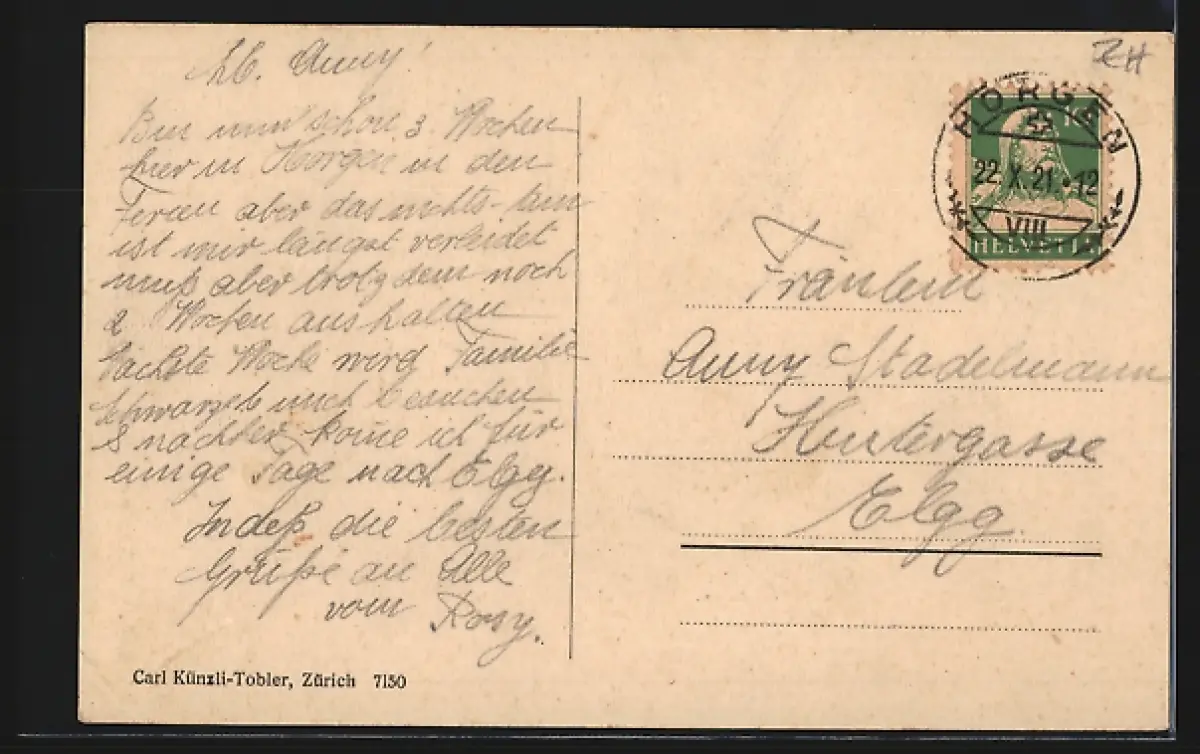 Lb. Anny!
Bin nun schon 3. Wochen
hier in Horgen in den
Ferien aber das nichts-tun
ist mir längst verleidet
muß aber trotz dem noch
2 Wochen aushalten
Nächste Woche wird Familie
mich besuchen
& nachher kome ich für
einige Tage nach Elgg.
Indeß die besten
Grüße an Alle
vom Rosy.
Carl Künzli-Tobler, Zürich 7150
ZH
HORGEN
22.X.21.-12
VIII
HELVETIA
Fräulein
Anny Stadelmann
Hintergasse
Elgg